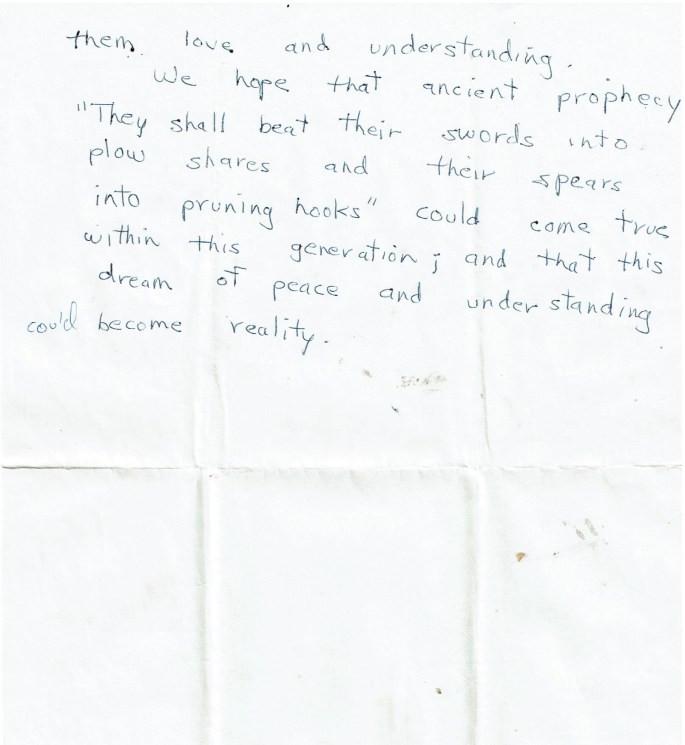 them love and understanding.
We hope that ancient prophecy
"They shall beat their swords into
plow shares and their spears
into pruning hooks" could come true
within this generation; and that this
dream of peace and understanding
could become reality.